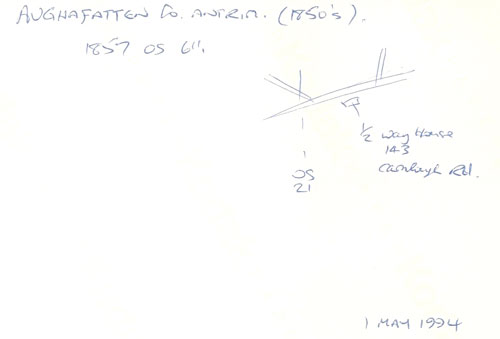 AUGHAFATTEN Co. ANTRIM. (1850's).
1857 OS 6".
1/2 Way House
143
Carnlough Rd.
OS
21
1 MAY 1994